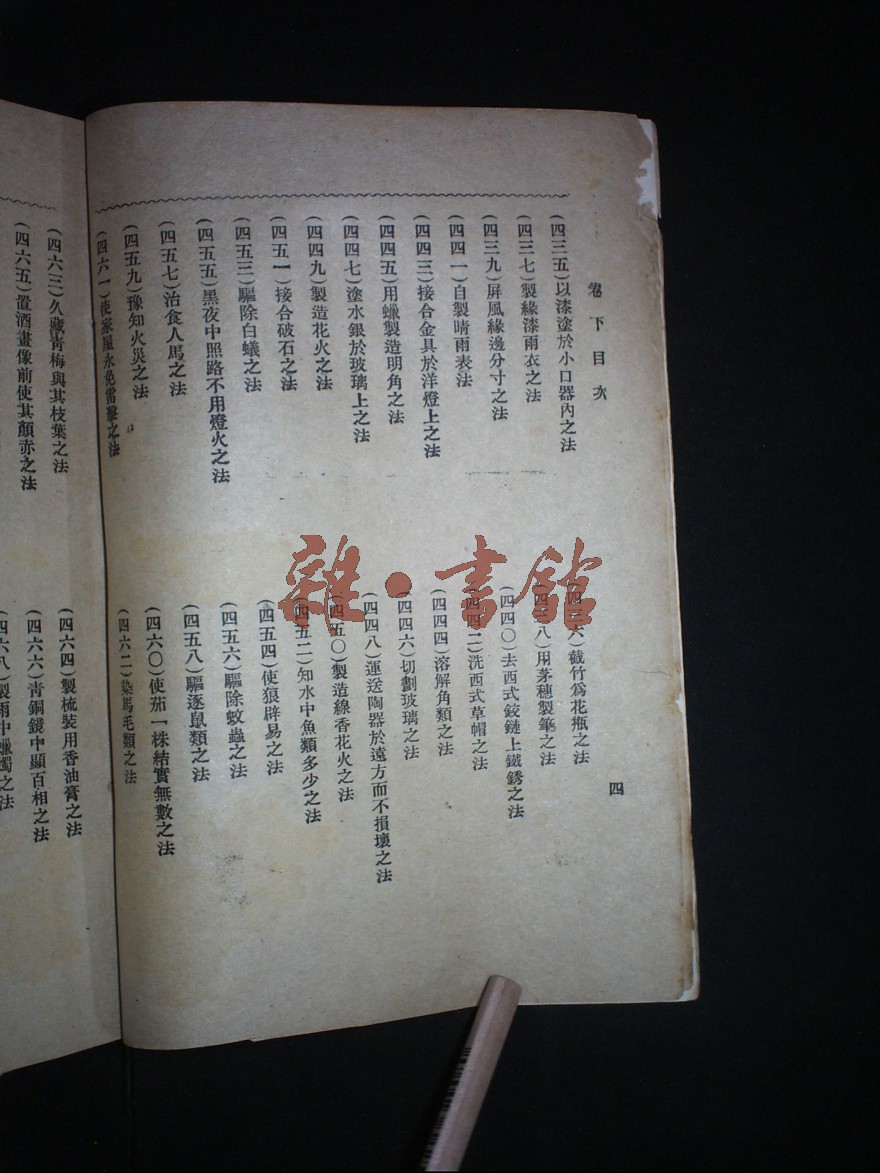 卷下目次
四
(四三五)以漆塗於小口器內之法
(四三六)截竹爲花瓶之法
(四三七)製綠漆雨衣之法
(四三八)用茅穗製筆之法
(四三九)屏風緣邊分寸之法
(四四〇)去西式鉸鏈上鐵銹之法
(四四一)自製晴雨表法
(四四二)洗西式草帽之法
(四四三)接合金具於洋燈上之法
(四四四)溶解角類之法
(四四五)用蠟製造明角之法
(四四六)切劃玻璃之法
(四四七)塗水銀於玻璃上之法
(四四八)運送陶器於遠方而不損壞之法
(四四九)製造花火之法
(四五〇)製造線香花火之法
(四五一)接合破石之法
(四五二)知水中魚類多少之法
(四五三)驅除白蟻之法
(四五四)使狼辟易之法
(四五五)黑夜中照路不用燈火之法
(四五六)驅除蚊蟲之法
(四五七)治食人馬之法
(四五八)驅逐鼠類之法
(四五九)豫知火災之法
(四六〇)使茄一株結實無數之法
(四六一)使家屋永免雷擊之法
(四六二)染馬毛類之法
(四六三)久藏青梅與其枝葉之法
(四六四)製梳裝用香油膏之法
(四六五)置酒畫像前使其顏赤之法
(四六六)青銅鏡中顯百相之法
(四六八)製雨中蠟燭之法
雜·書館